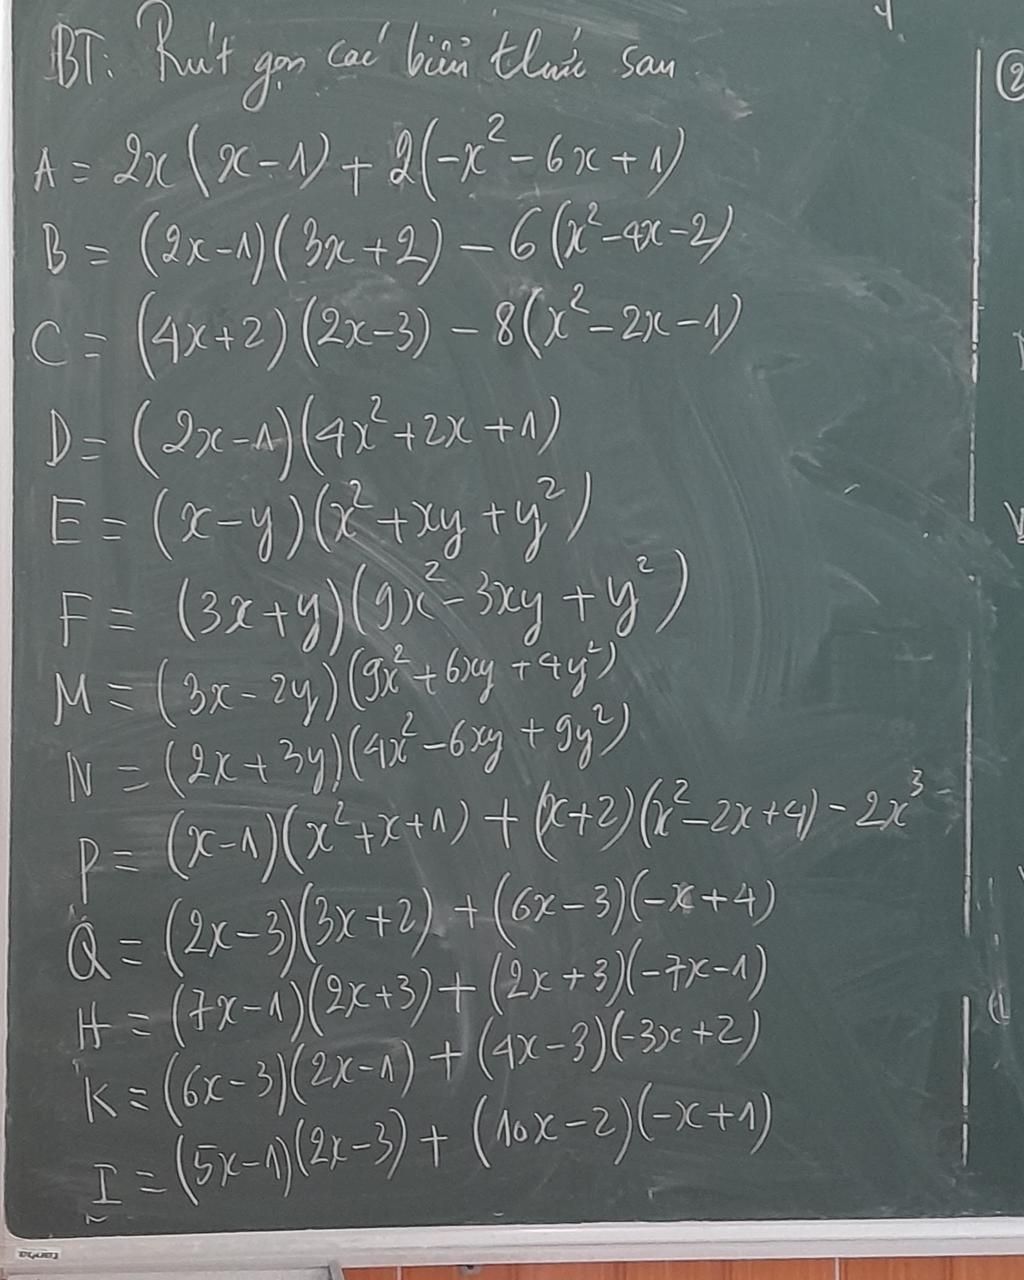 BT: Rút gọn các biểu thức sau
A = 2x(x-1) + 2(-x² - 6x + 1)
B = (2x-1)(3x+2) - 6(x²-4x-2)
C = (4x+2)(2x-3) - 8(x²-2x-1)
D = (2x-1)(4x²+2x+1)
E = (x-y)(x²+xy+y²)
F = (3x+y)(9x²-3xy+y²)
M = (3x-2y)(9x²+6xy+4y²)
N = (2x+3y)(4x²-6xy+9y²)
P = (x-1)(x²+x+1) + (x+2)(x²-2x+4) - 2x³
Q = (2x-3)(3x+2) + (6x-3)(-x+4)
H = (7x-1)(2x+3) + (2x+3)(-7x-1)
K = (6x-3)(2x-1) + (4x-3)(-3x+2)
I = (5x-1)(2x-3) + (10x-2)(-x+1)
②